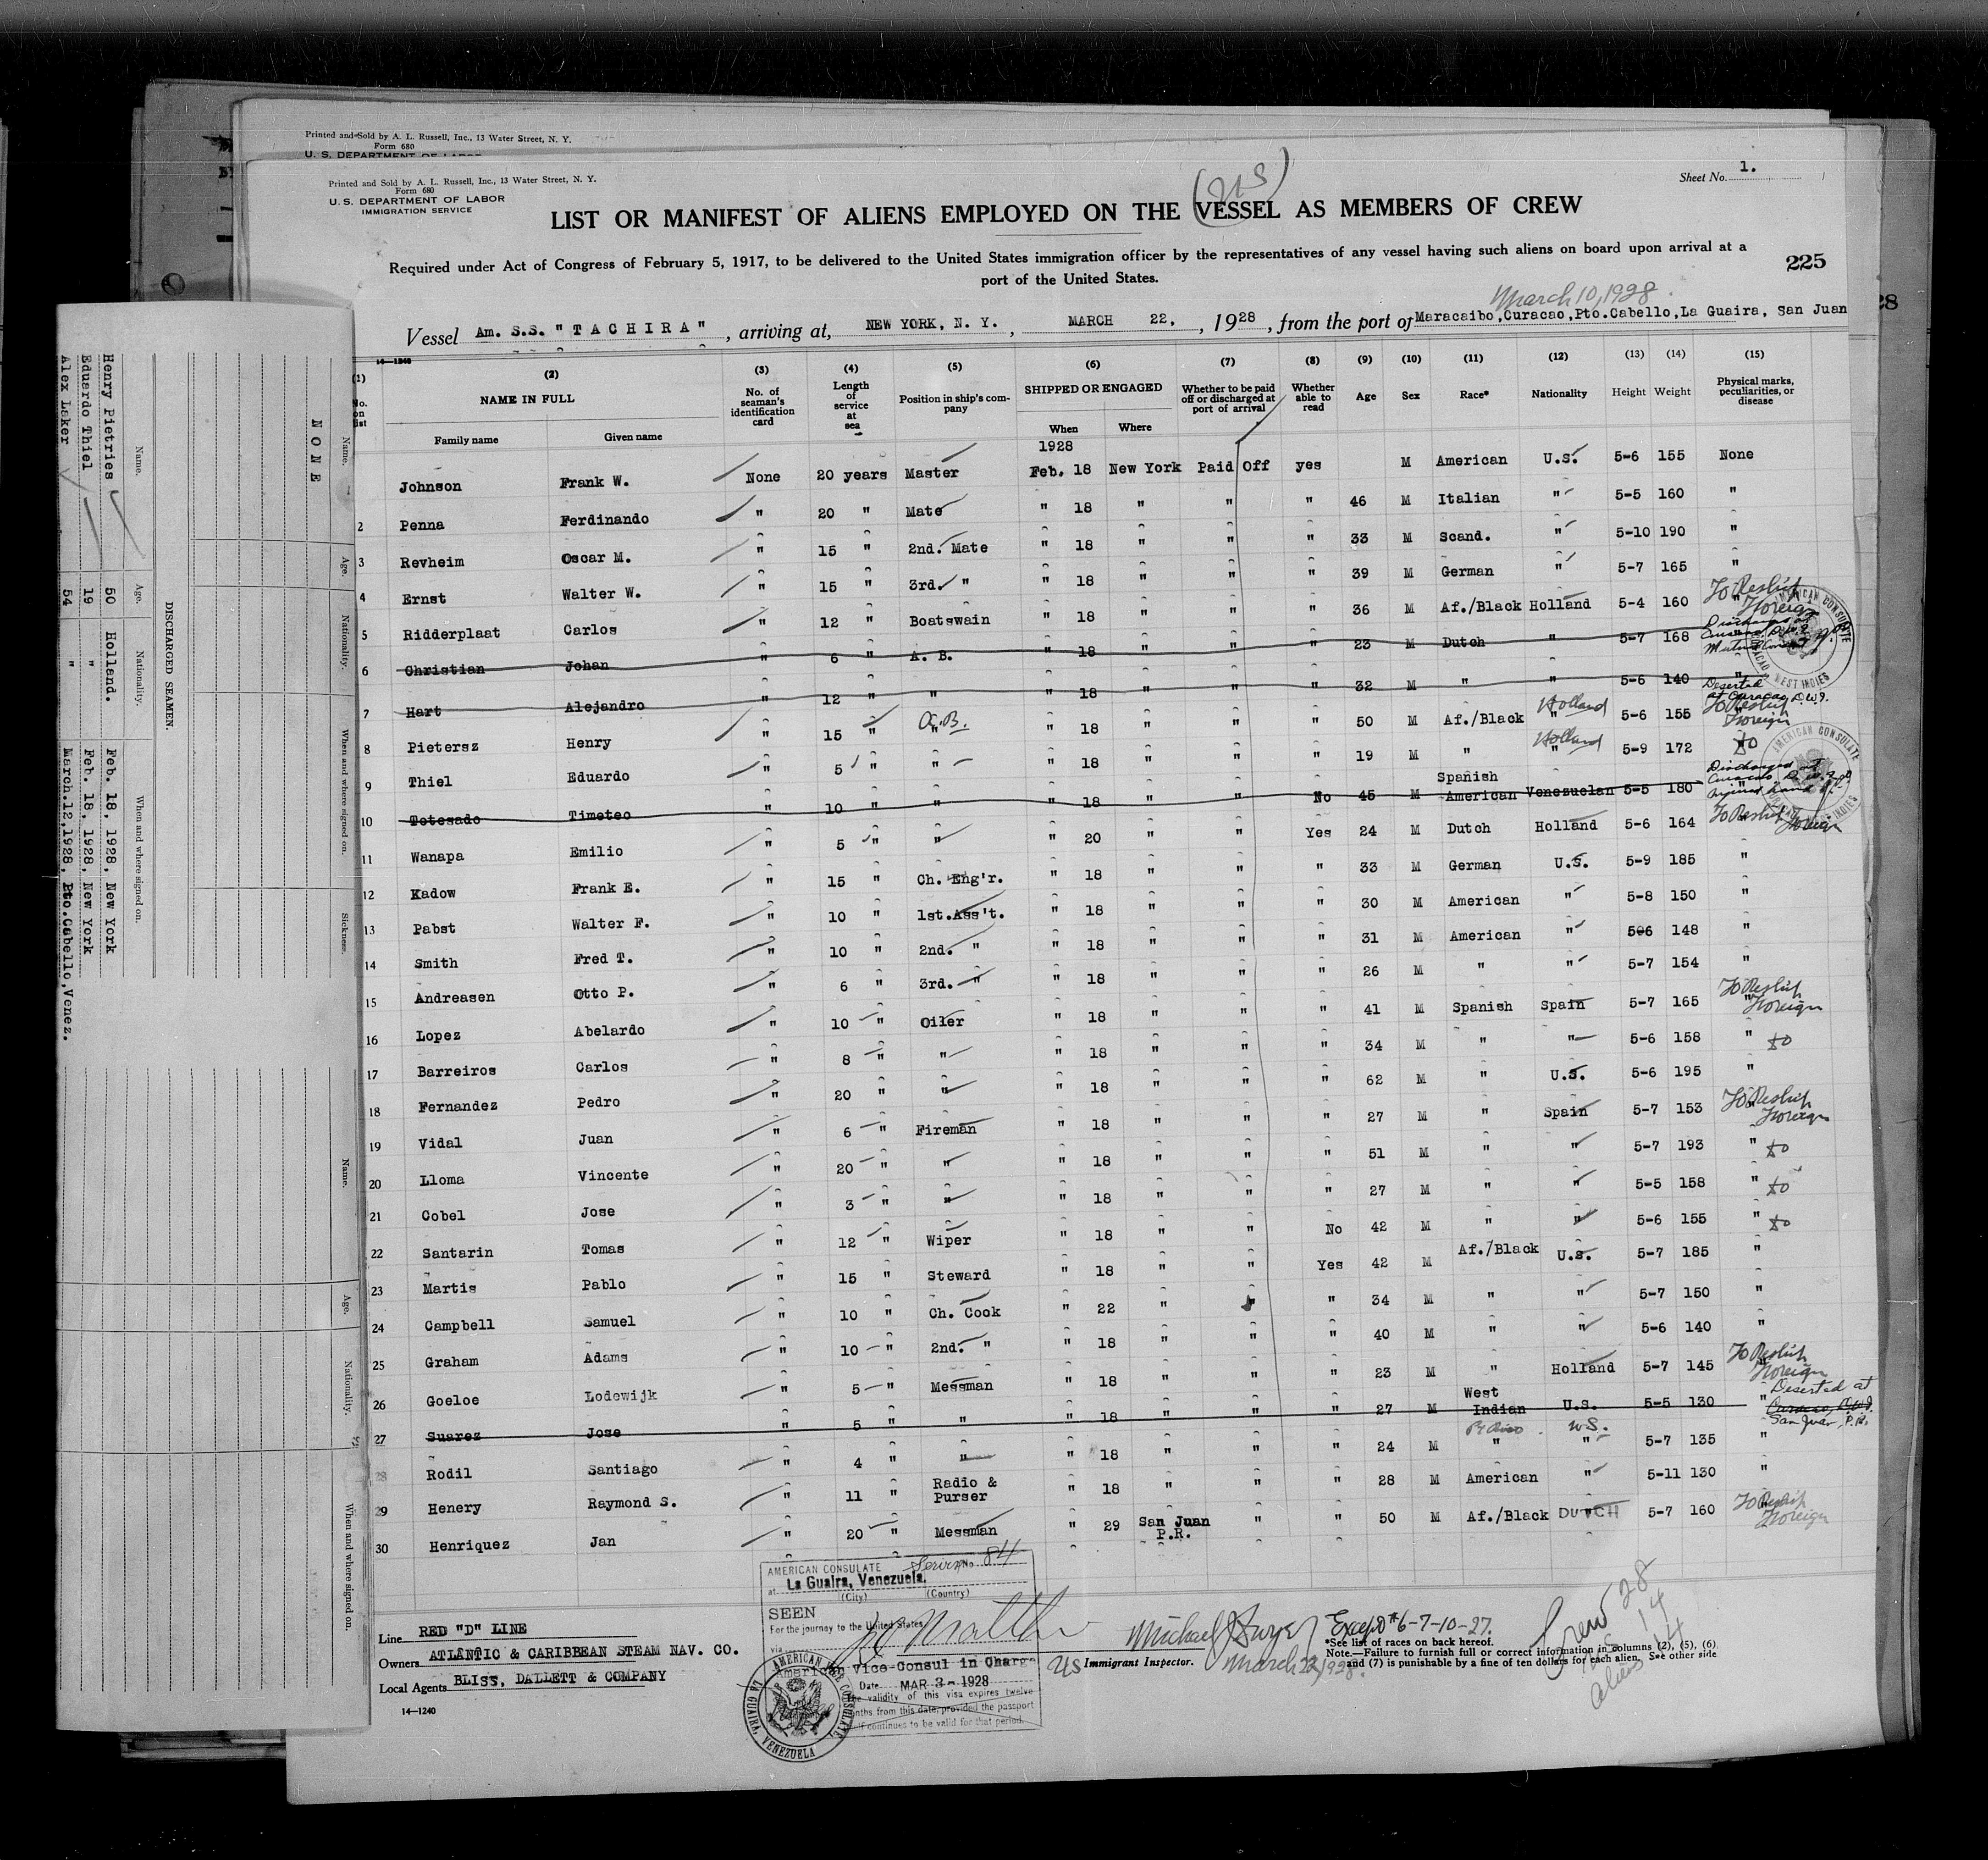 Printed and Sold by A. L. Russell, Inc., 13 Water Street, N. Y.
Form 680
U. S. DEPARTMENT OF LABOR
Printed and Sold by A. L. Russell, Inc., 13 Water Street, N. Y.
Form 680
U. S. DEPARTMENT OF LABOR
IMMIGRATION SERVICE
Sheet No. 1.
(US)
LIST OR MANIFEST OF ALIENS EMPLOYED ON THE VESSEL AS MEMBERS OF CREW
Required under Act of Congress of February 5, 1917, to be delivered to the United States immigration officer by the representatives of any vessel having such aliens on board upon arrival at a
port of the United States.
225
28
March 10, 1928.
Vessel Am. S.S. "TACHIRA", arriving at, NEW YORK, N. Y., MARCH 22, 1928, from the port of Maracaibo, Curacao, Pto. Cabello, La Guaira, San Juan
14—1240
(1) No. on list (2) NAME IN FULL Family name Given name (3) No. of seaman's identification card (4) Length of service at sea (5) Position in ship's company (6) SHIPPED OR ENGAGED When Where (7) Whether to be paid off or discharged at port of arrival (8) Whether able to read (9) Age (10) Sex (11) Race* (12) Nationality (13) Height (14) Weight (15) Physical marks, peculiarities, or disease
1928
Johnson Frank W. None 20 years Master Feb. 18 New York Paid Off yes M American U.S. 5-6 155 None
2 Penna Ferdinando " 20 " Mate " 18 " " " 46 M Italian " 5-5 160 "
3 Revheim Oscar M. " 15 " 2nd. Mate " 18 " " " 33 M Scand. " 5-10 190 "
4 Ernst Walter W. " 15 " 3rd. " " 18 " " " 39 M German " 5-7 165 "
5 Ridderplaat Carlos " 12 " Boatswain " 18 " " " 36 M Af./Black Holland 5-4 160 " To Reship Foreign
6 Christian Johan " 6 " A. B. " 18 " " " 23 M Dutch " 5-7 168 Discharged at Curacao, D.W.I. Mutual Consent
7 Hart Alejandro " 12 " " " 18 " " " 32 M " " 5-6 140 " Deserted at Curacao, D.W.I.
8 Pietersz Henry " 15 " A.B. " " 18 " " " 50 M Af./Black Holland " 5-6 155 " To Reship Foreign
9 Thiel Eduardo " 5 " " " 18 " " " 19 M " Holland " 5-9 172 do
10 Totesado Timoteo " 10 " " " 18 " " No 45 M Spanish American Venezuelan 5-5 180 Discharged at Curacao D.W.I.
11 Wanapa Emilio " 5 " " " 20 " " Yes 24 M Dutch Holland 5-6 164 To Reship Foreign
12 Kadow Frank E. " 15 " Ch. Eng'r. " 18 " " " 33 M German U.S. 5-9 185 "
13 Pabst Walter F. " 10 " 1st. Ass't. " 18 " " " 30 M American " 5-8 150 "
14 Smith Fred T. " 10 " 2nd. " " 18 " " " 31 M American " 5-6 148 "
15 Andreasen Otto P. " 6 " 3rd. " " 18 " " " 26 M " " 5-7 154 "
16 Lopez Abelardo " 10 " Oiler " 18 " " " 41 M Spanish Spain 5-7 165 " To Reship Foreign
17 Barreiros Carlos " 8 " " " 18 " " " 34 M " " 5-6 158 " do
18 Fernandez Pedro " 20 " " " 18 " " " 62 M " U.S. 5-6 195 "
19 Vidal Juan " 6 " Fireman " 18 " " " 27 M " Spain 5-7 153 " To Reship Foreign
20 Lloma Vincente " 20 " " " 18 " " " 51 M " " 5-7 193 " do
21 Cobel Jose " 3 " " " 18 " " " 27 M " " 5-5 158 " do
22 Santarin Tomas " 12 " Wiper " 18 " " No 42 M " " 5-6 155 " do
23 Martis Pablo " 15 " Steward " 18 " " Yes 42 M Af./Black U.S. 5-7 185 "
24 Campbell Samuel " 10 " Ch. Cook " 22 " " " 34 M " " 5-7 150 "
25 Graham Adams " 10 " 2nd. " " 18 " " " 40 M " " 5-6 140 "
26 Goeloe Lodewijk " 5 " Messman " 18 " " " 23 M " Holland 5-7 145 " To Reship Foreign
27 Suarez Jose " 5 " " " 18 " " " 27 M West Indian U.S. 5-5 130 " Deserted at Curacao, D.W.I. San Juan, P.R.
28 Rodil Santiago " 4 " " " 18 " " " 24 M " " U.S. 5-7 135 "
29 Henery Raymond S. " 11 " Radio & Purser " 18 " " " 28 M American " 5-11 130 "
30 Henriquez Jan " 20 " Messman " 29 San Juan P.R. " " 50 M Af./Black DUTCH 5-7 160 To Reship Foreign
AMERICAN CONSULATE
CURACAO WEST INDIES
AMERICAN CONSULATE
Line RED "D" LINE
Owners ATLANTIC & CARIBBEAN STEAM NAV. CO.
Local Agents BLISS, DALLETT & COMPANY
14—1240
AMERICAN CONSULATE Service No. 84
at La Guaira, Venezuela.
(City) (Country)
SEEN
For the journey to the United States
via
American Vice-Consul in Charge
Date MAR 3 - 1928
The validity of this visa expires twelve
months from this date, provided the passport
itself continues to be valid for that period.
AMERICAN CONSULATE LA GUAIRA, VENEZUELA
Michael J Dwyer
US Immigrant Inspector. March 22/1928.
Except # 6-7-10-27.
*See list of races on back hereof.
Note.—Failure to furnish full or correct information in columns (2), (5), (6),
and (7) is punishable by a fine of ten dollars for each alien. See other side
Crew 28
U.S. 14
Aliens 14
Name. Age. Nationality. When and where signed on. Sickness.
NONE
Name. Age. Nationality. When and where signed on.
DISCHARGED SEAMEN.
Name. Age. Nationality. When and where signed on.
Henry Pietries 50 Holland. Feb. 18, 1928, New York
Eduardo Thiel 19 " Feb. 18, 1928, New York
Alex Laker 54 " March.12,1928, Pto.Cabello,Venez.